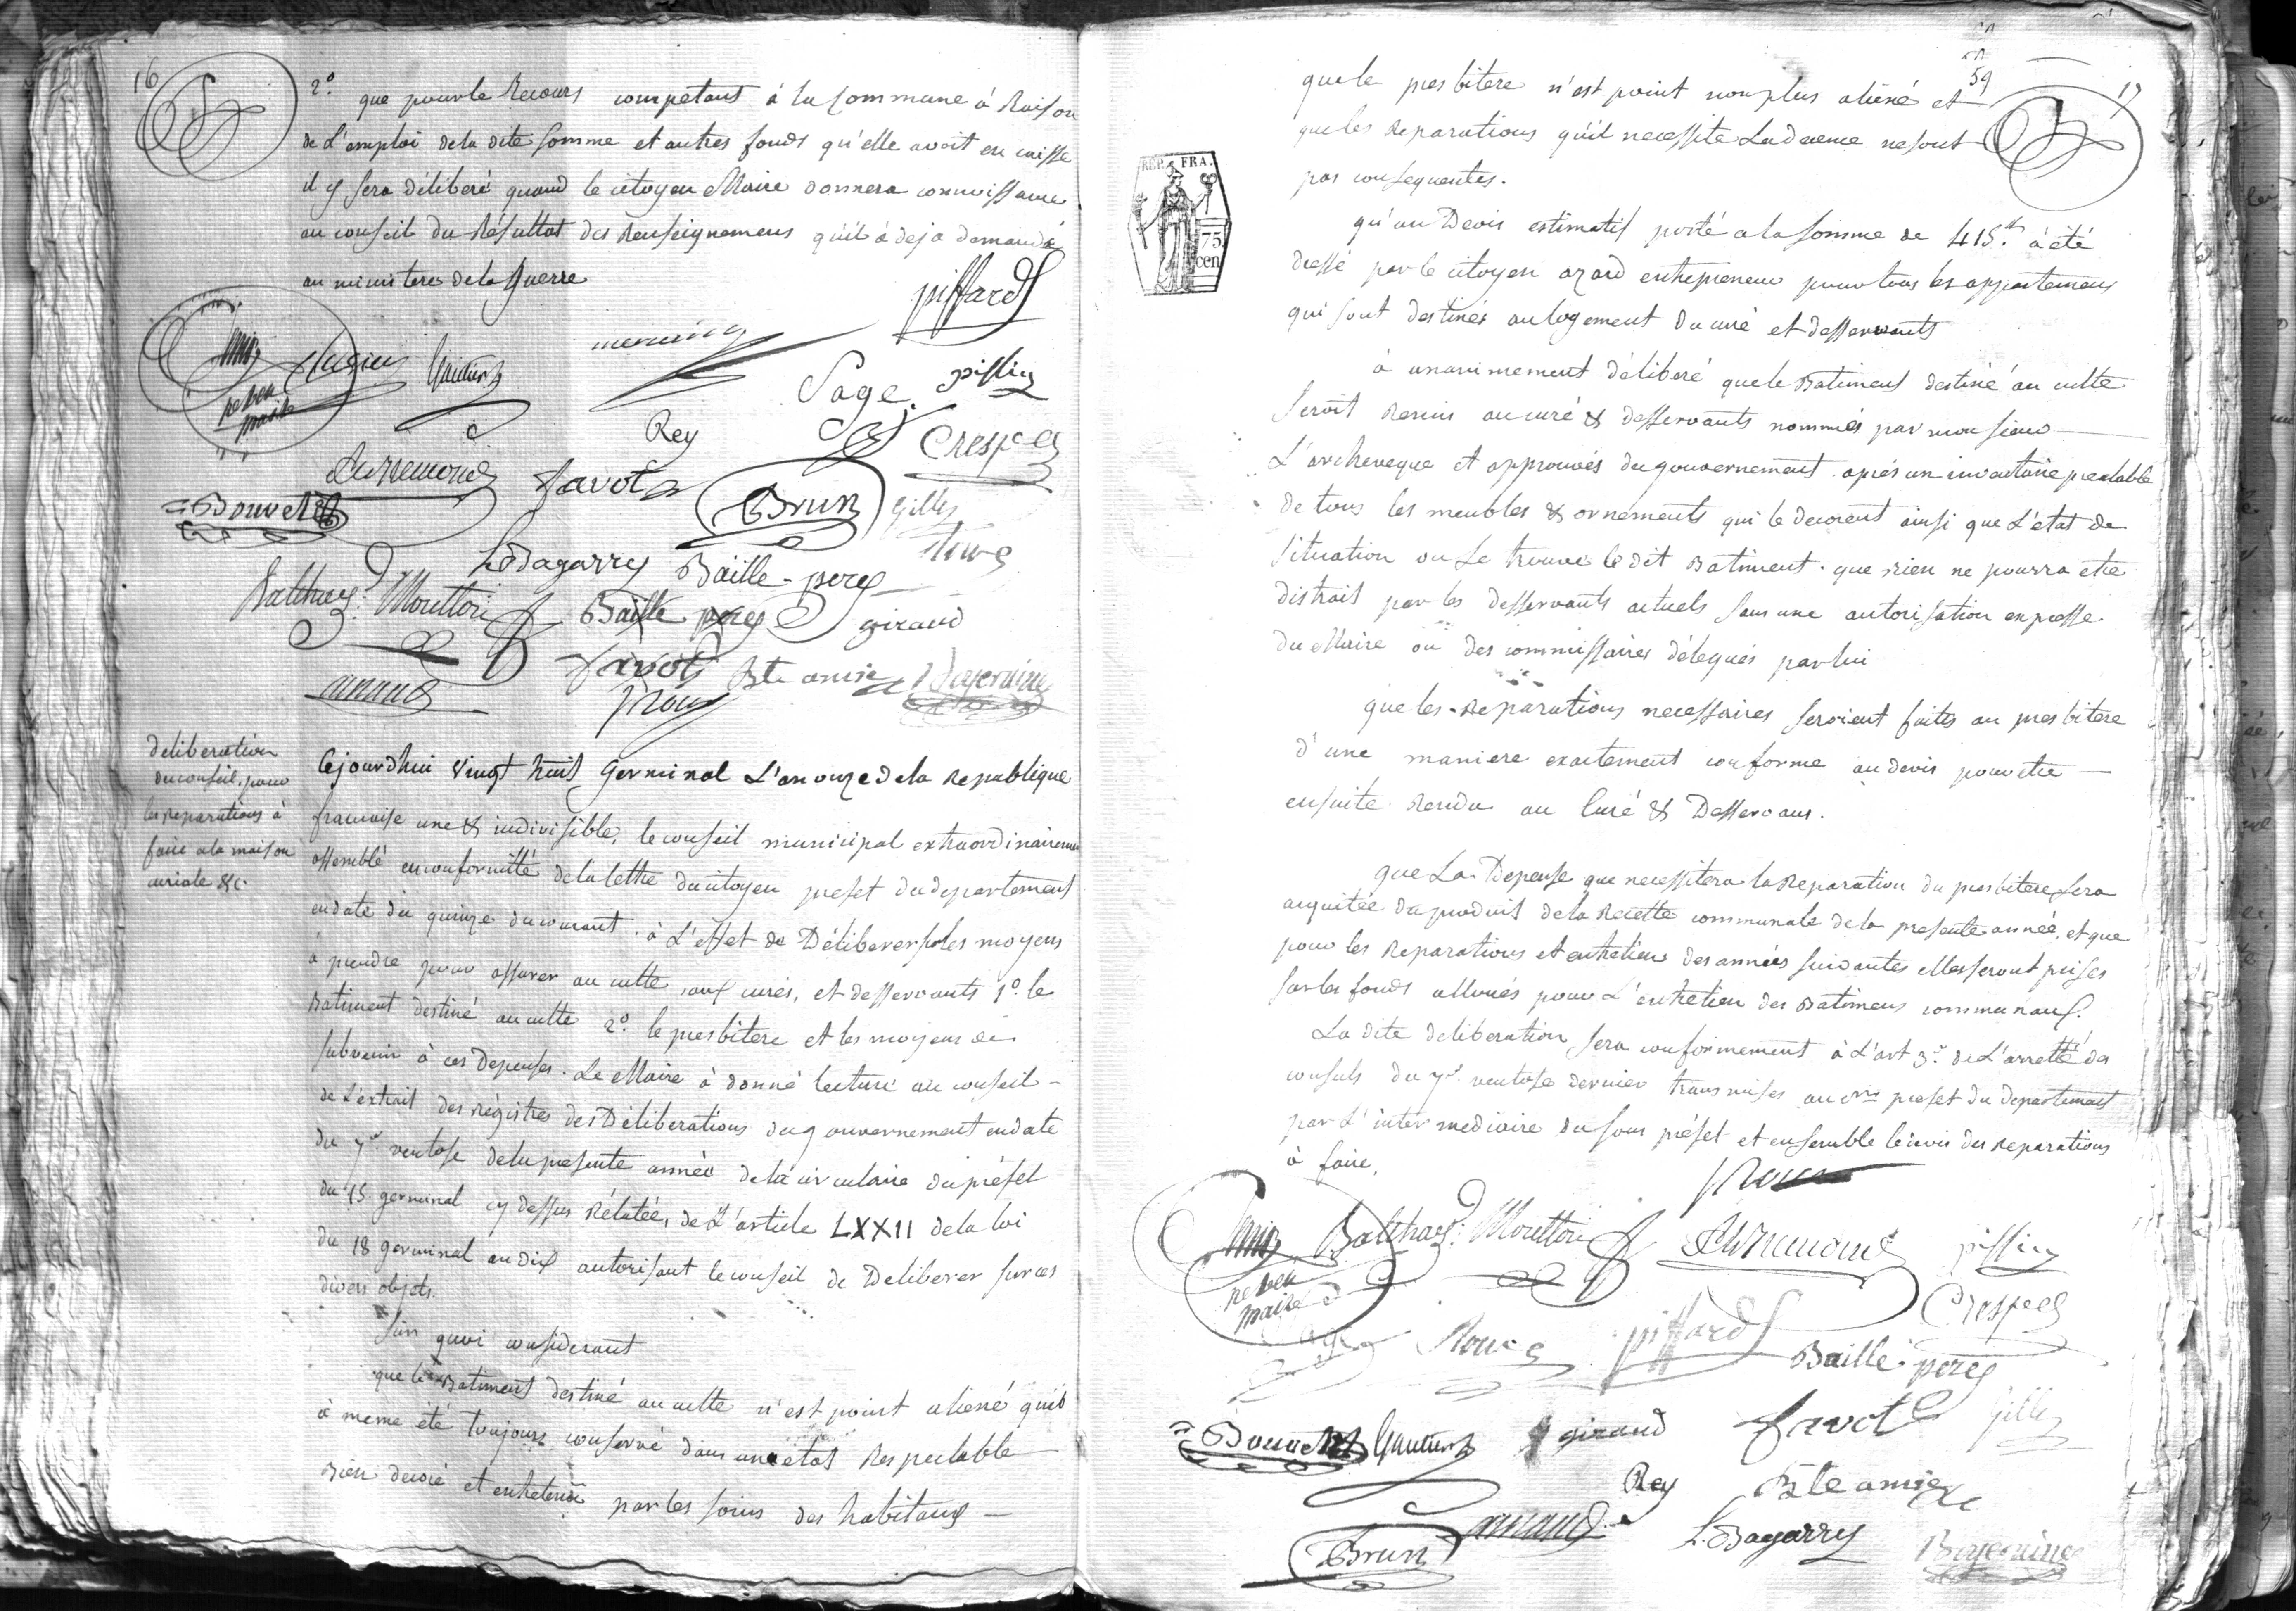 16
2º que pour le Recours competant à la Commune à Raison
de L'emploi de la dite somme et autres fonds qu'elle avoit en caisse
il y sera déliberé quand le citoyen Maire donnera connoissance
au conseil du Résultat des Renseignemens qu'il à deja demandé
au ministere de la Guerre
piffard
Gautier
Sage
pissin
neveu
maire
Rey
Crespe
favot
Bouvet
Brun
Gilly
L Dagarry
Baille pere
Balthar: Mouttou
Baille pere
giraud
favot
Bte amic
arnaud
Roux
deliberation
du conseil, pour
les reparations à
faire a la maison
curiale &c.
Cejourdhui vingt huit Germinal L'an onze de la Republique
francaise une & indivisible, le conseil municipal extraordinairement
assemblé en conformitté de la lettre du citoyen prefet du departement
en date du quinze du courant. à L'effet de Déliberer sur les moyens
à prendre pour assurer au culte, aux curés, et desservants 1º. le
Batiment destiné au culte 2º. le presbitere et les moyens de
subvenir à ces Depenses. Le Maire à donné lecture au conseil -
de L'extrait des régistres des Déliberations du gouvernement en date
du 7e ventose de la presente année de la circulaire du préfet
du 15 germinal cy dessus Rélatée, de L'article LXXII de la loi
du 18 germinal an dix autorisant le conseil de Deliberer sur ces
divers objets.
Sur quoi considerant
que le Batiment destiné au culte n'est point aliené qu'il
à meme été toujours conservé dans un etat Respectable
Bien decoré et entretenu par les soins des habitans -
59
17
que le presbitere n'est point non plus aliené et
que les Reparations qu'il necessite La decence ne sont
pas consequentes.
REP. FRA.
75
cen
qu'un Devis estimatif porté a la somme de 415.# à été
dressé par le citoyen azard entrepreneur pour tous les appartemens
qui sont destinés au logement du curé et desservants
à unanimement déliberé que le Batiment destiné au culte
seroit Remis au curé & desservants nommés par monsieur
L'archeveque et approuvés du gouvernement apres un inventaire prealable
de tous les meubles & ornements qui le decorent ainsi que L'etat de
situation ou se trouve le dit Batiment. que rien ne pourra etre
distrait par les desservants actuels sans une autorisation expresse
du Maire ou des commissaires délegués par lui
que les Reparations necessaires seroient faites au presbitere
d'une maniere exactement conforme au devis pour etre
ensuite Rendu au Curé & Desservans.
que La Depense que necessitera la Reparation du presbitere sera
acquitée du produit de la Recette communale de la presente année, et que
pour les Reparations et entretiens des années suivantes elles seront prises
sur les fonds alloués pour L'entretien des Batimens communaux.
La dite deliberation sera conformement à L'art 3e. de L'arretté des
consuls du 7e ventose dernier transmises au cen prefet du Departement
par L'intermediaire du sous préfet et ensemble le devis des reparations
à faire,
Roux
Balthar: Mouttou
pissin
neveu
maire
Crespe
Sage
piffard
Baille pere
Bouvet
Gautier
giraud
favot
Gilly
Rey
Bte amic
arnaud
L. Dagarry
Brun